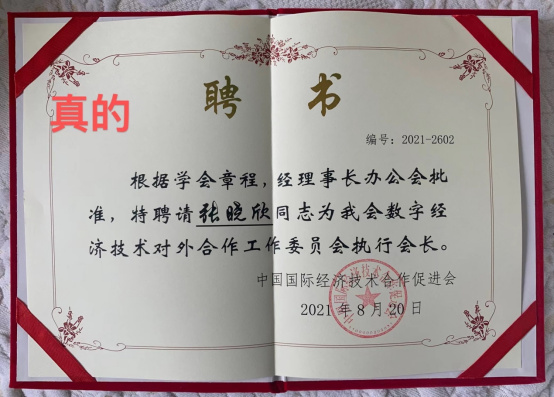 聘书
真的
编号：2021-2602
根据学会章程，经理事长办公会批
准，特聘请张晓欣同志为我会数字经
济技术对外合作工作委员会执行会长。
中国国际经济技术合作促进会
2021年8月20日